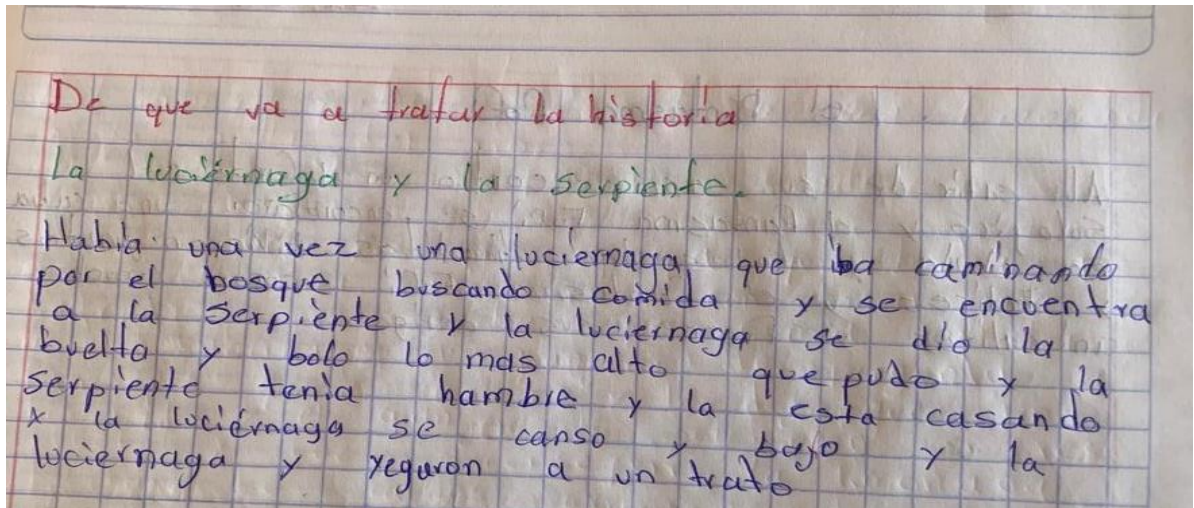 De que va a tratar la historia
La luciérnaga y la serpiente.
Habia una vez una luciernaga, que iba caminando
por el bosque buscando comida y se encuentra
a la serpiente y la luciernaga se dio la
buelta y bolo lo mas alto que pudo y la
serpiente tenia hambre y la esta casando
y la luciérnaga se canso y bajo y la
luciernaga y yegaron a un trato